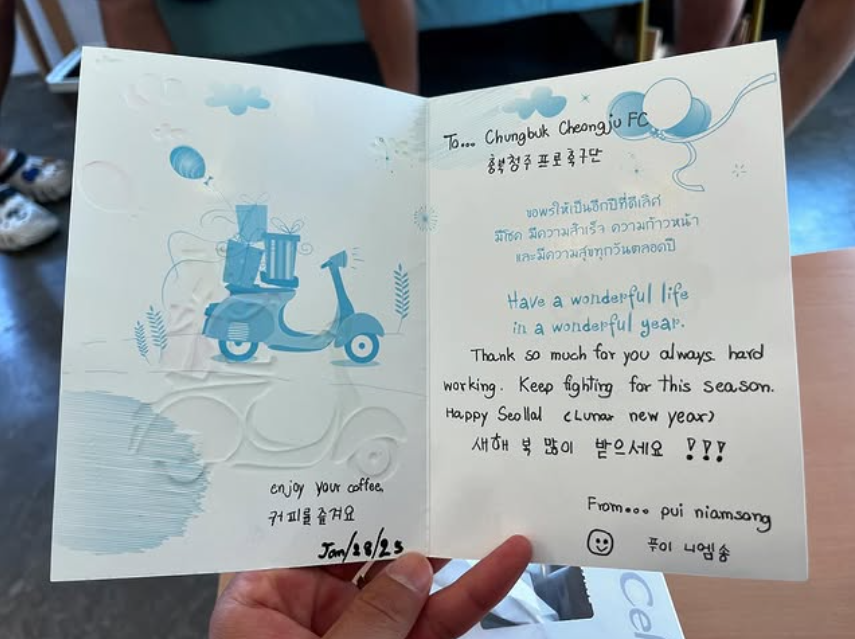 enjoy your coffee.
커피를 즐겨요
Jan/28/25
To... Chungbuk Cheongju FC
충북청주 프로축구단
ขอพรให้เป็นอีกปีที่ดีเลิศ
มีโชค มีความสำเร็จ ความก้าวหน้า
และมีความสุขทุกวันตลอดปี
Have a wonderful life
in a wonderful year.
Thank so much for you always hard
working. Keep fighting for this season.
Happy Seollal (Lunar new year)
새해 복 많이 받으세요 !!!
From... pui niamsong
푸이 니엠송
Cel